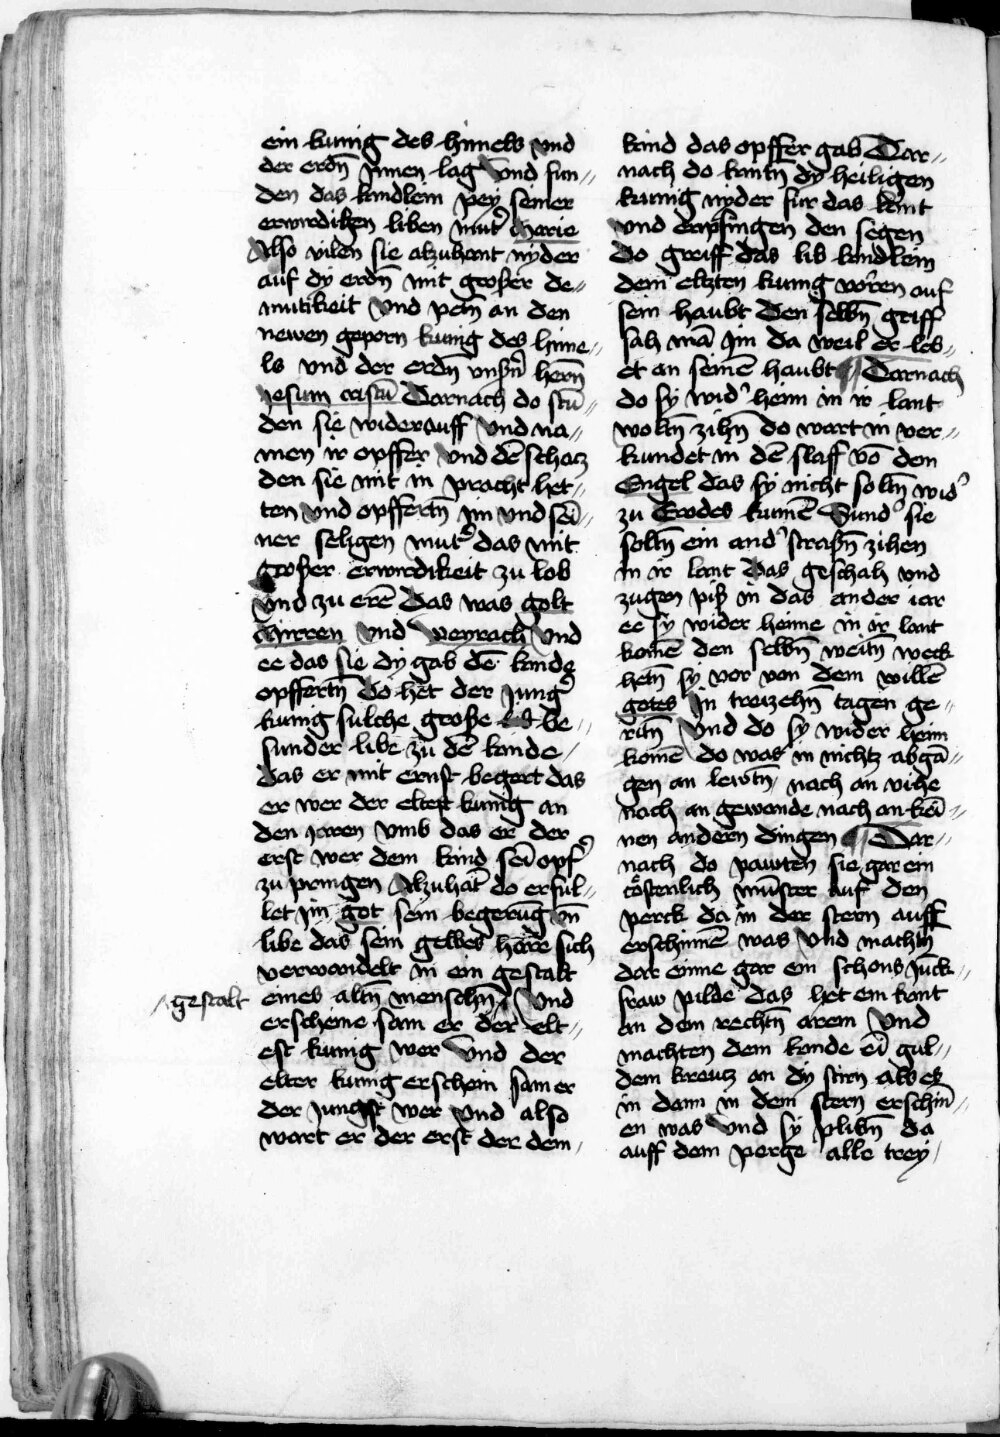 ein kunig des himels vnd
der erdñ Jnnen lag Vnd fun„
den das kindlein pey seiner
erwirdiken liben mut᷑ Marie
Also vilen sie alzuhant nyder
auf dy erdñ mit großer de„
mutikeit Vnd petñ an den
newen geporn kunig des hime„
ls vnd der erdñ vnßñ herñ
Jesum cristū Darnach do stū„
den sie widerauff Vnd na„
men ir opffer Vnd dē schacz
den sie mit in pracht het„
ten Vnd opffertñ im vnd sei„
ner seligen mut᷑ das mit
großer erwirdikeit zu lob
Vnd zu erē Das was golt
Mirren Vnd Weyrach Vnd
ee das sie dy gab dē kinde
opffertñ do het der Jung᷑
kunig sulche große be„
sunder libe zu dē kinde
das er mit ernst begert das
er wer der eltest kunig an
den Jaren Vmb das er der
erst wer dem kind sei opf᷑
zu pringen Alzuhāt do erful„
let im got sein begerūg vñ
libe das sein gelbes hare sich
verwandelt in ein gestalt
gestalt
eines altñ menschñ Vnd
erscheine sam er der elt„
est kunig wer Vnd der
elter kunig erschein sam er
der Jungst wer Vnd also
wart er der erst der dem
kind das opffer gab Dar„
nach do kamtñ dy heiligen
kunig nyder fur das kint
Vnd enpfingen den segen
Do greiff das lib kindlein
dem eltzten kunig voren auf
sein haubt Den selbñ griff
sah mā im da weil er leb„
et an seinē haubt Darnach
do sy wid᷑ heim in ir lant
woltñ zihñ do wart in ver„
kundet in dē slaff vō dem
Engel das sy nicht soltñ wid᷑
zu Erodes kumē Sund᷑ sie
soltñ ein and᷑ straßñ zihen
in ir lant Das geschah vnd
zugen piß in das ander iar
ee sy wider heime in ir lant
komē den selbñ weitñ weck
hetñ sy vor von dem willē
gotes in treizehñ tagen ge„
ritñ Vnd do sy wider heim
komē do was in nichtz abgā„
gen an lewtñ nach an vihe
nach an gewande nach an kei„
nen andern dingen Dar„
nach do pawten sie gar ein
cöstenlich münster auf den
perck da in der stern auff
erschinnē was Vnd machtñ
dar einne gar ein schons Junck„
fraw pilde das het ein kint
an dem rechtñ arem Vnd
machten dem kinde ei gul„
dem kreucz an dy stirn als es
in dann in dem stern erschin„
en was Vnd sy plibñ da
auff dem perge alle trey